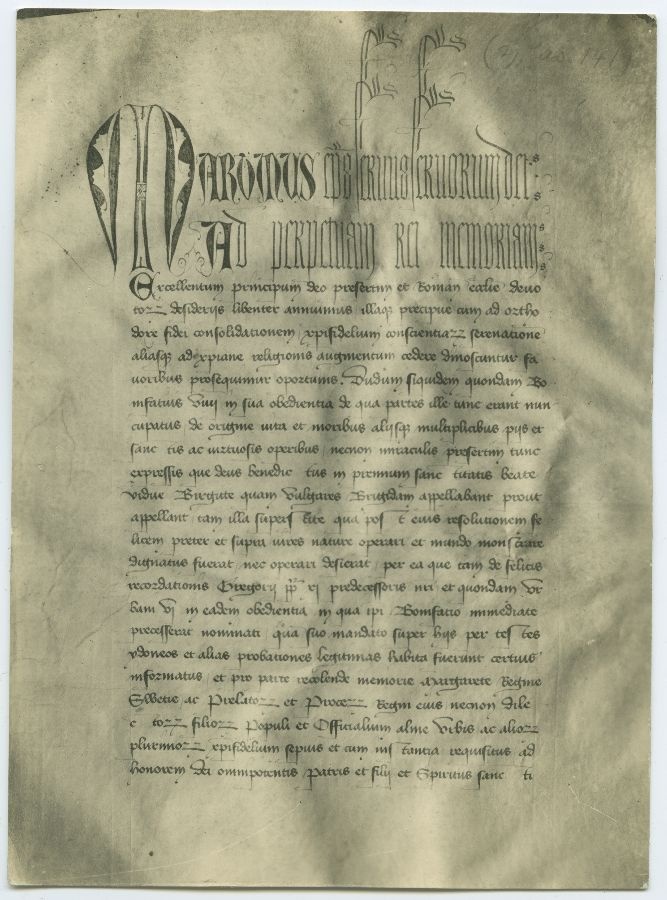 (7) as 1419
MARTINUS ep̄s seruus seruorum dei
Ad perpetuam rei memoriam
Excellentium principum deo presertim et Roman ecclie deuo
toꝝ desiderijs libenter annuimus illaqꝫ precipue cum ad ortho
doxe fidei consolidationem xpifidelium conscientiaꝝ serenatione
aliasqꝫ ad xpiane religionis augmentum cedere dinoscuntur fa
uoribus prosequimur oportunis. Dudum siquidem quondam Bo
nifatius viiij in sua obedientia de qua partes ille tunc erant nun
cupatus de origine uita et moribus alijsqꝫ multiplicibus pijs et
sanc tis ac virtuosis operibus necnon miraculis presertim tunc
expressis que deus benedic tus in premium sanc titatis beate
vidue Birgite quam vulgares Brigidam appellabant prout
appellant tam illa supers tite qua pos t eius resolutionem fe
licem preter et supra vires nature operari et mundo mons trare
dignatus fuerat nec operari desierat per ea que tam de felicis
recordationis Gregorij pp̄ xj predecessoris nri et quondam Vr
bani vj in eadem obedientia in qua ipi Bonifatio immediate
precesserat nominati qua suo mandato super hijs per tes tes
ydoneos et alias probationes legitimas habita fuerunt certius
informatus et pro parte recolende memorie Margarete Regine
Swetie ac Prelatoꝝ et Proceꝝ Regni eius necnon dile
c toꝝ filioꝝ Populi et Officialium alme Vrbis ac alioꝝ
plurimoꝝ xpifidelium sepius et cum ins tantia requisitus ad
honorem dei omnipotentis Patris et filij et Spiritus sanc ti